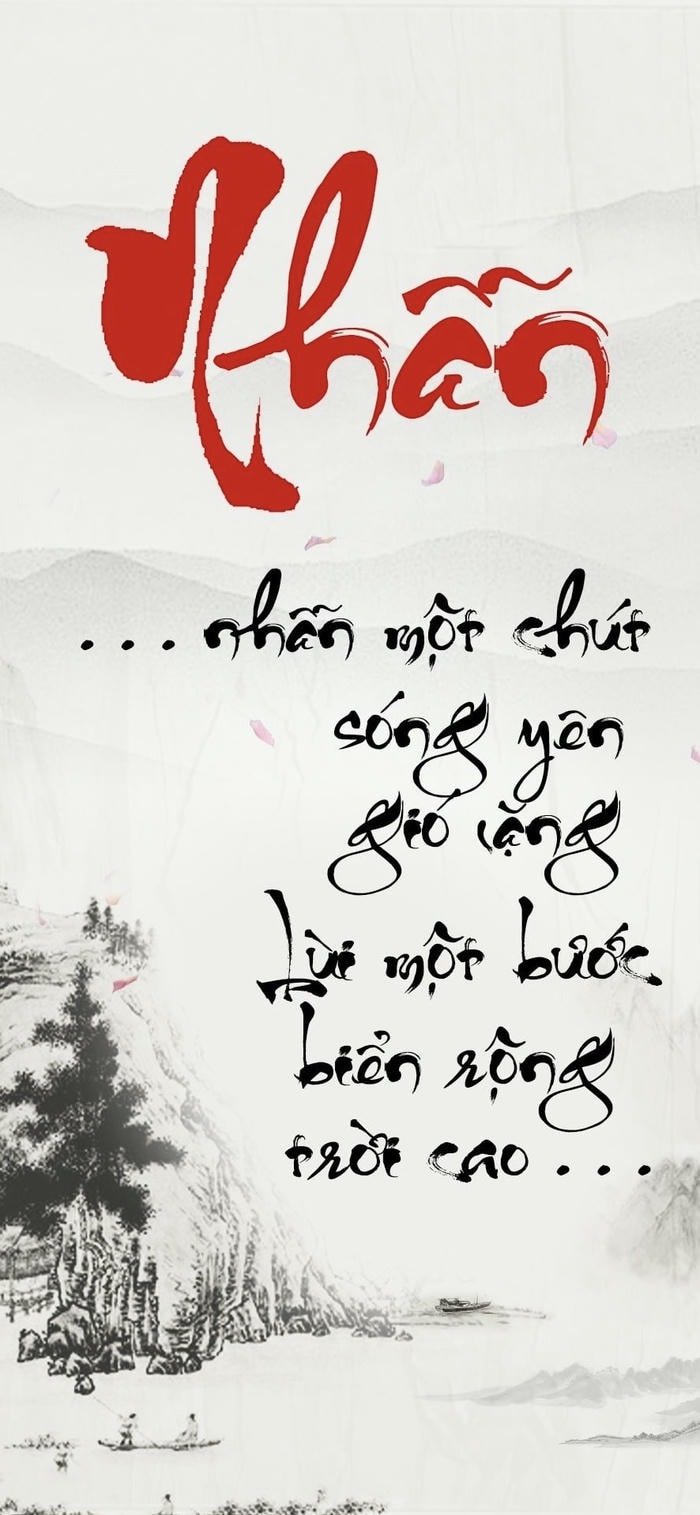 Nhẫn
. . . nhẫn một chút
sóng yên
gió lặng
Lùi một bước
biển rộng
trời cao . . .